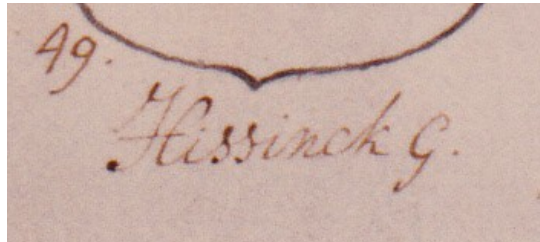 49.
Hissinck G.